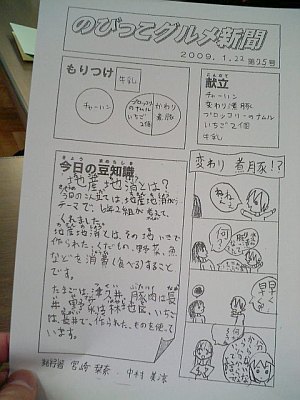 のびっこグルメ新聞
2009. 1. 22 第75号
もりつけ
牛乳
チャーハン
ブロッコリーのナムル
いちご
2個
かわり
煮豚
こんだて
献立
チャーハン
変わり煮豚
ブロッコリーのナムル
いちご 2個
牛乳
きょう まめちしき
今日の豆知識
地産地消とは?
今日のこん立ては、地産地消が
テーマで、6年2組が考えて
くれました。
地産地消とは、その地いきで
作られた、くだもの、野菜、魚
などを消費(食べる)すること
です。
たまごは、津久井、豚肉は長
井、野菜は林地区、いちご
は、長井で、作られたものを使って
います。
変わり 煮豚!?
ねぇ
ねぇ
何?
早く
早く
発行者 宮崎 梨奈 ・ 中村 美涼